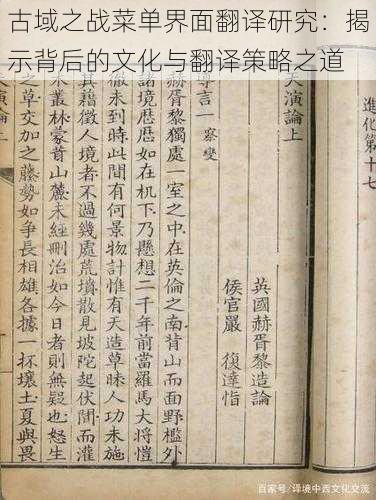 古域之战菜单界面翻译研究：揭
示背后的文化与翻译策略之道
進化第十七
天演論上
英國赫胥黎造論
侯官嚴 復達恉
導言一 察變
赫胥黎獨處一室之中在英倫之南背山而面野檻外
諸境歷歷如在机下乃懸想二千年前當羅馬大將愷
徹未到時此間有何景物計惟有天造草昧人功未施
其藉徵人境者不過幾處荒墳散見坡陀起伏間而灌
木叢林蒙茸山麓未經刪治如今日者則無疑也怒生
之草交加之藤勢如爭長相雄各據一抔壤土夏與畏
百家号/译境中西文化交流